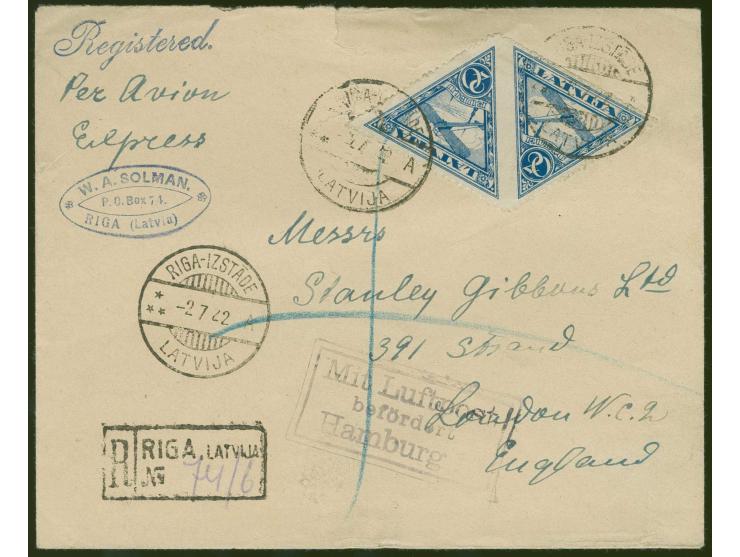 Registered.
Per Avion
Express
W. A. SOLMAN.
P. O. Box 74.
RIGA (Latvia)
LATVIJA
20
LATVIJA
20
A
LATVIJA
RIGA-IZSTĀDE
LATVIJA
RIGA-IZSTĀDE
-2.7.22
LATVIJA
Messrs
Stanley Gibbons Ltd
391 Strand
London W.C.2
England
Mit Luftpost
befördert
Hamburg
R
RIGA, LATVIJA
№ 74/6